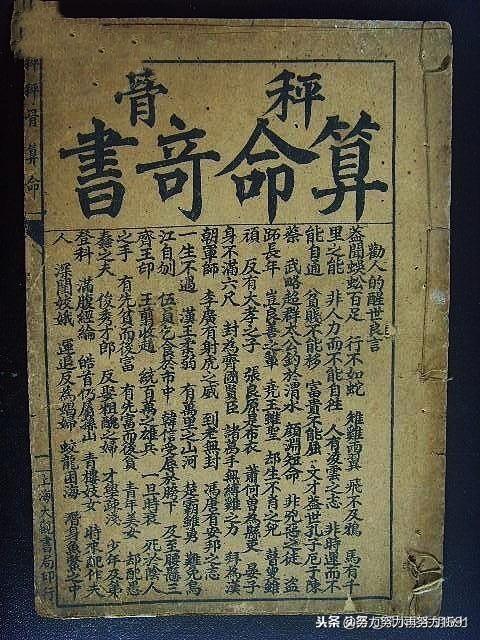 秤骨
算命奇書
勸人的醒世良言
蓋聞蜈蚣百足 行不如蛇 雄雞兩翼 飛不及鴉 馬有千
里之能 非人力而不能自往 人有凌雲之志 非時運而不
能自通 貧賤不能移 富貴不能屈 文才蓋世孔子厄于陳
蔡 武略超群太公釣於渭水 顏淵短命 非兇惡之徒 盜
跖長年 豈良善之輩 堯王雖聖 却生不肖之兒 瞽叟雖
頑 反有大孝之子 張良原是布衣 蕭何曾為縣吏 晏子
身不滿六尺 封為齊國賢臣 諸葛手無縛雞之力 拜為漢
朝軍師 李廣有射虎之威 到老無封 馮唐有安邦之志
一生不遇 漢王柔弱 有萬里之山河 楚霸雖勇 難免烏
江自刎 伍員乞食於市中 韓信受辱於胯下 及至腰懸三
齊王印 王翦收趙 統百萬之雄兵 一旦時衰 死於陰人
之手 有先貧而後富 有先富而後貧 青年美女 却配愚
蠢之夫 俊秀才郎 反娶粗醜之婦 才學疎淺 少年及第
登科 滿腹經綸 皓首仍屬孫山 青樓妓女 時來配作夫
人 深閨姣娥 運退反為娼婦 蛟龍困海 潛身魚鱉之中
上海大觀書局印行
秤骨算命
头条号/努力努力再努力1591